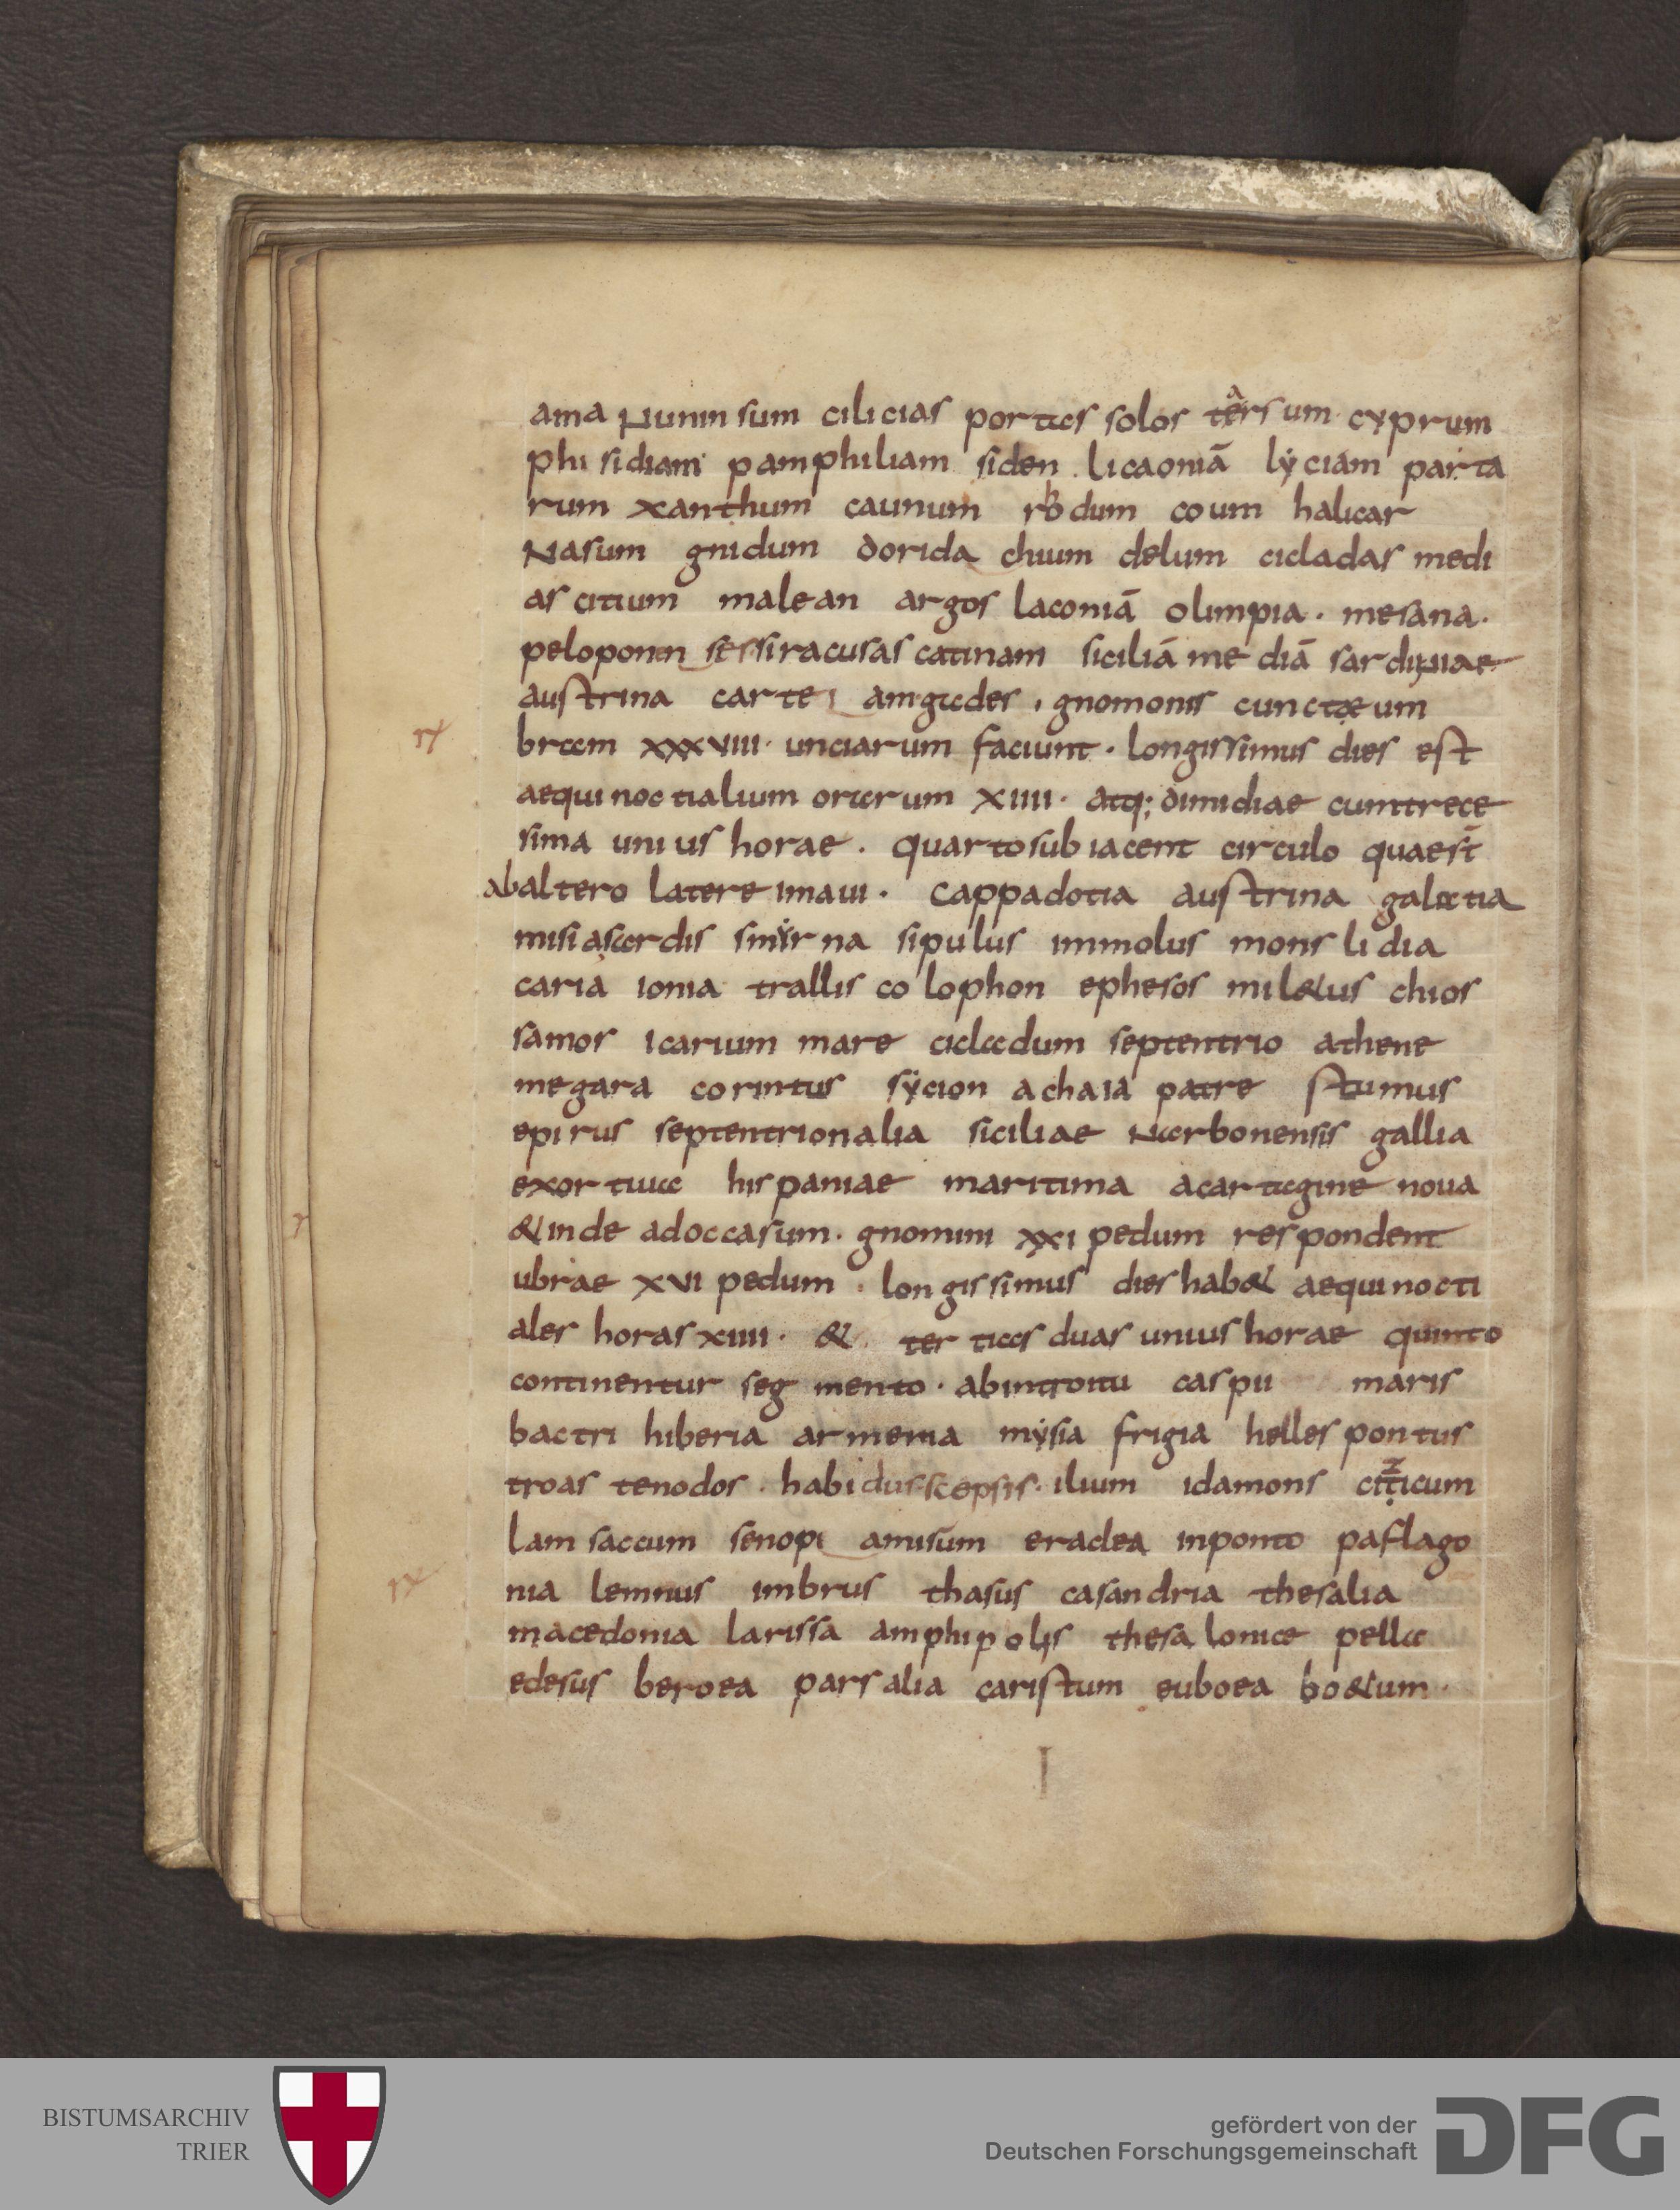 ama Nunin sum cilicias portas solos tersum cyprum
phisidiam pamphiliam siden licaoniā lyciam parta
rum xanthum caunum rhodum coum halicar
Nasum gnidum dorida chium delum cicladas medi
as citium malean argos laconiā olimpia · mesana ·
peloponen ses siracusas catinam siciliā mediā sardiniae
austrina cartei amgades · gnomonis cunctae um
bram xxxviii · unciarum faciunt · longissimus dies est
aequinoctialium orarum xiiii · atq; dimidiae cumtrece
sima unius horae · quarto subiacent circulo quaest
abaltero latere imaui · cappadotia austrina galatia
misia sardis smyrna sipulus immolus mons lidia
caria ionia trallis colophon ephesos mil&us chios
samos icarium mare cicladum septentrio athene
megara corintus sycion achaia patre stumus
epirus septentrionalia siciliae Narbonensis gallia
exortiua hispaniae maritima acartagine noua
&inde adoccasum · gnomini xxi pedum respondent
ubrae xvi pedum · longissimus dies hab& aequinocti
ales horas xiiii · & ter tias duas unius horae quinto
continentur segmento · abintroitu caspii maris
bactri hiberia armenia mysia frigia hellespontus
troas tenodos · habidus scepsis · ilium idamons citicum
lamsaccum senopi amisum eraclea inponto paflago
nia lemnus imbrus thasus casandria thesalia
macedonia larissa amphipolis thesalonice pella
edesus beroea parsalia caristum euboea bo&um ·
I
BISTUMSARCHIV
TRIER
gefördert von der
Deutschen Forschungsgemeinschaft
DFG